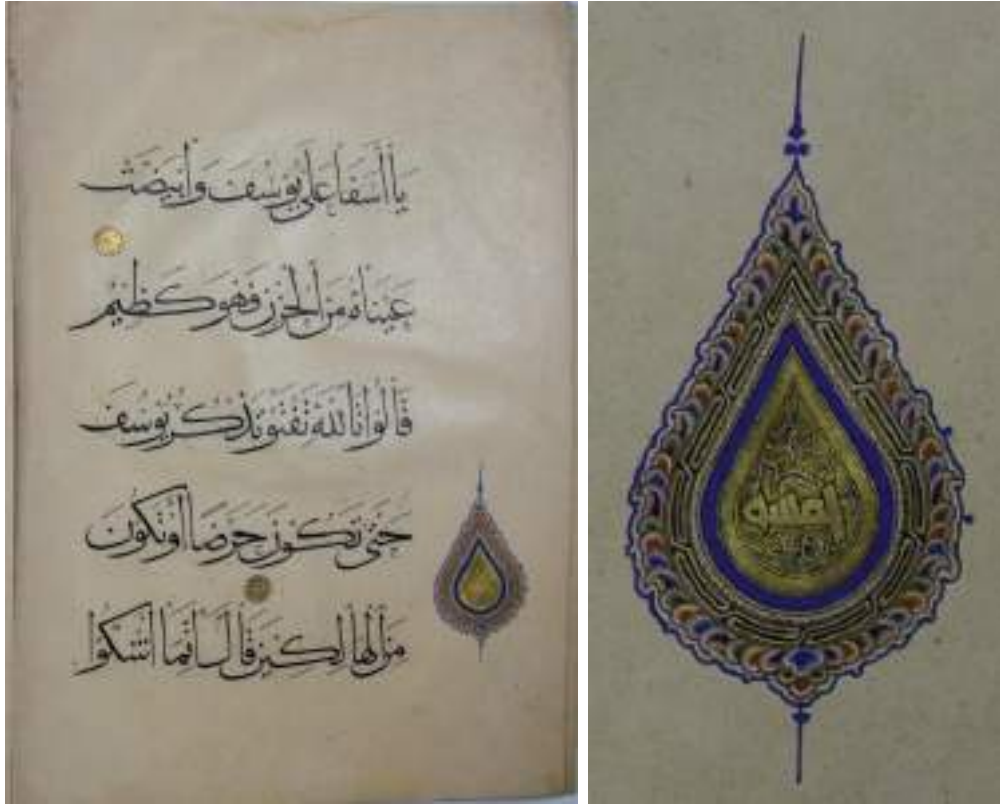 يا أسفا على يوسف وابيضت
عيناه من الحزن فهو كظيم
قالوا تالله تفتو تذكر يوسف
حتى تكون حرضا أو تكون
من الهالكين قال إنما أشكوا